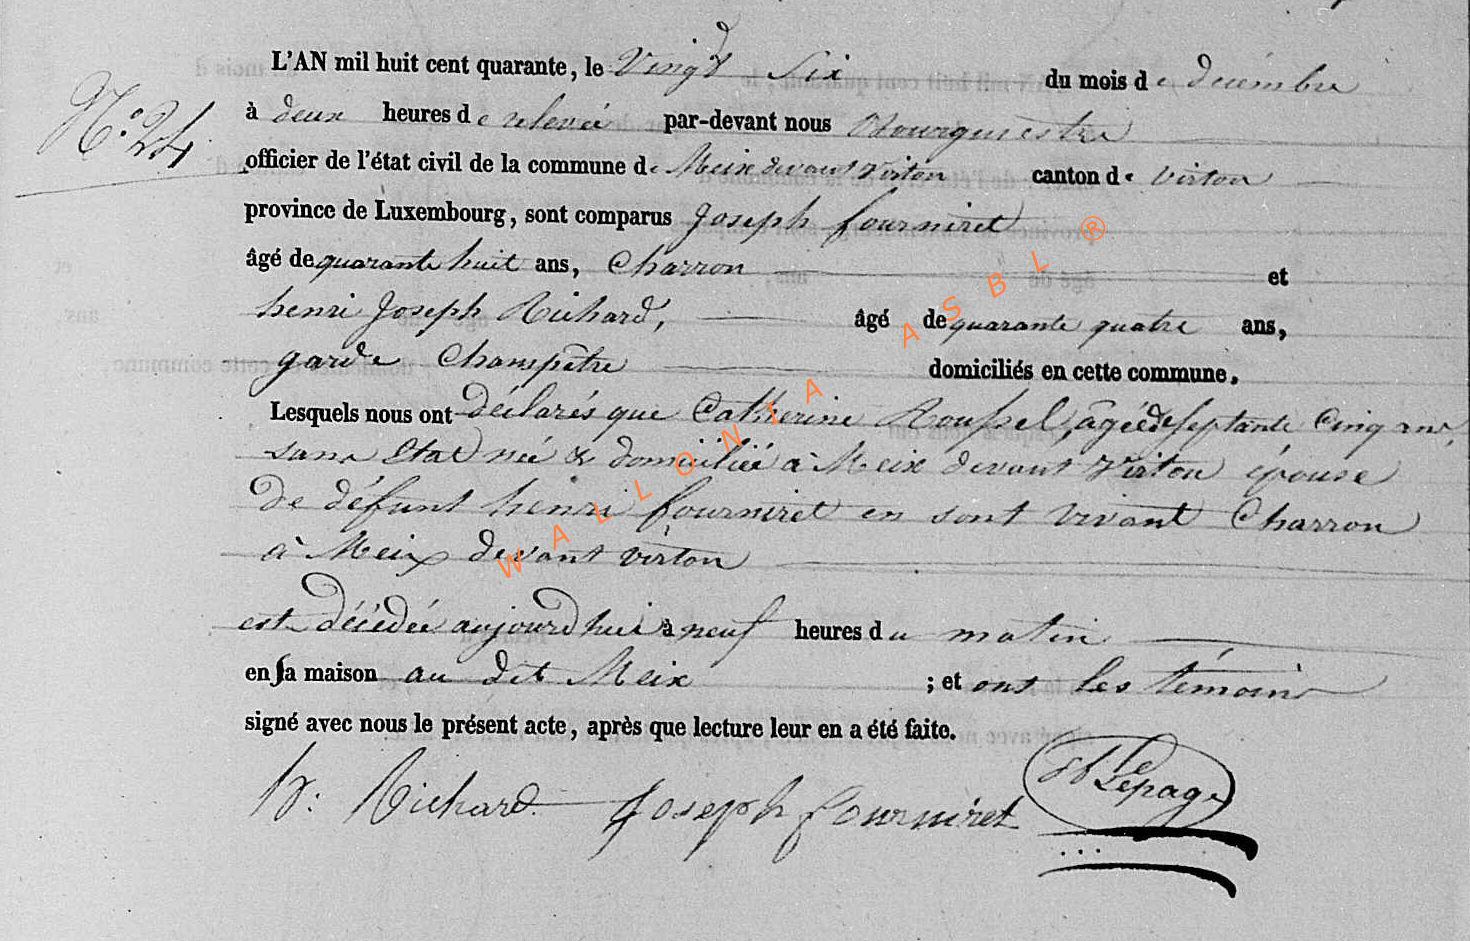 L'AN mil huit cent quarante, le Vingt Six du mois de décembre
N.° 24
à deux heures de relevée par-devant nous Bourguestre
officier de l'état civil de la commune de Meix devant Virton canton de virton
province de Luxembourg, sont comparus Joseph fourniret
âgé de quarante huit ans, Charron et
henri Joseph Richard, âgé de quarante quatre ans,
garde Champêtre domiciliés en cette commune,
Lesquels nous ont déclarés que Catherine Roussel, âgée de septante Cinq ans,
sans Etat née & domiciliée à Meix devant Virton épouse
de défunt henri fourniret en sont vivant Charron
à Meix devant virton
est décédée aujourd'hui à neuf heures du matin
en sa maison au dit Meix ; et ont les témoins
signé avec nous le présent acte, après que lecture leur en a été faite.
h: Richard Joseph fourniret Lepage
WALLONIA ASBL ®